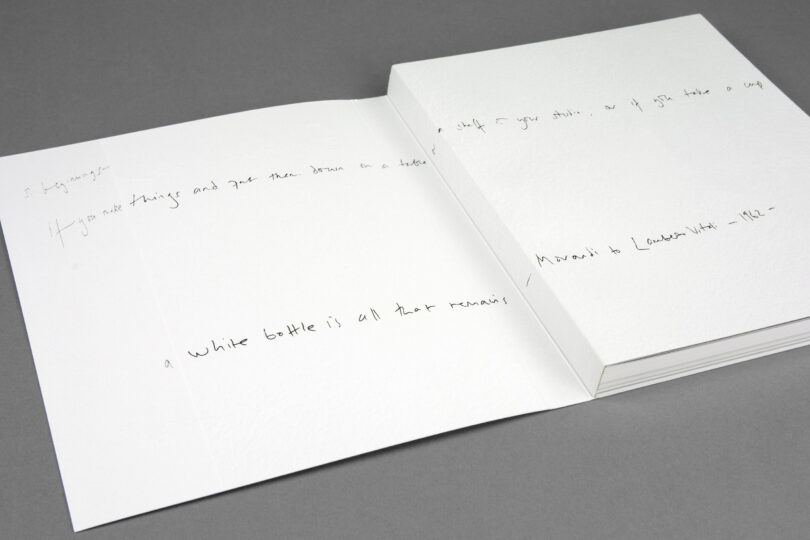 beginnings
If you make things and put them down on a table / a shelf in your studio, or if you take a cup
a white bottle is all that remains / Morandi to Lamberto Vitali – 1962 –